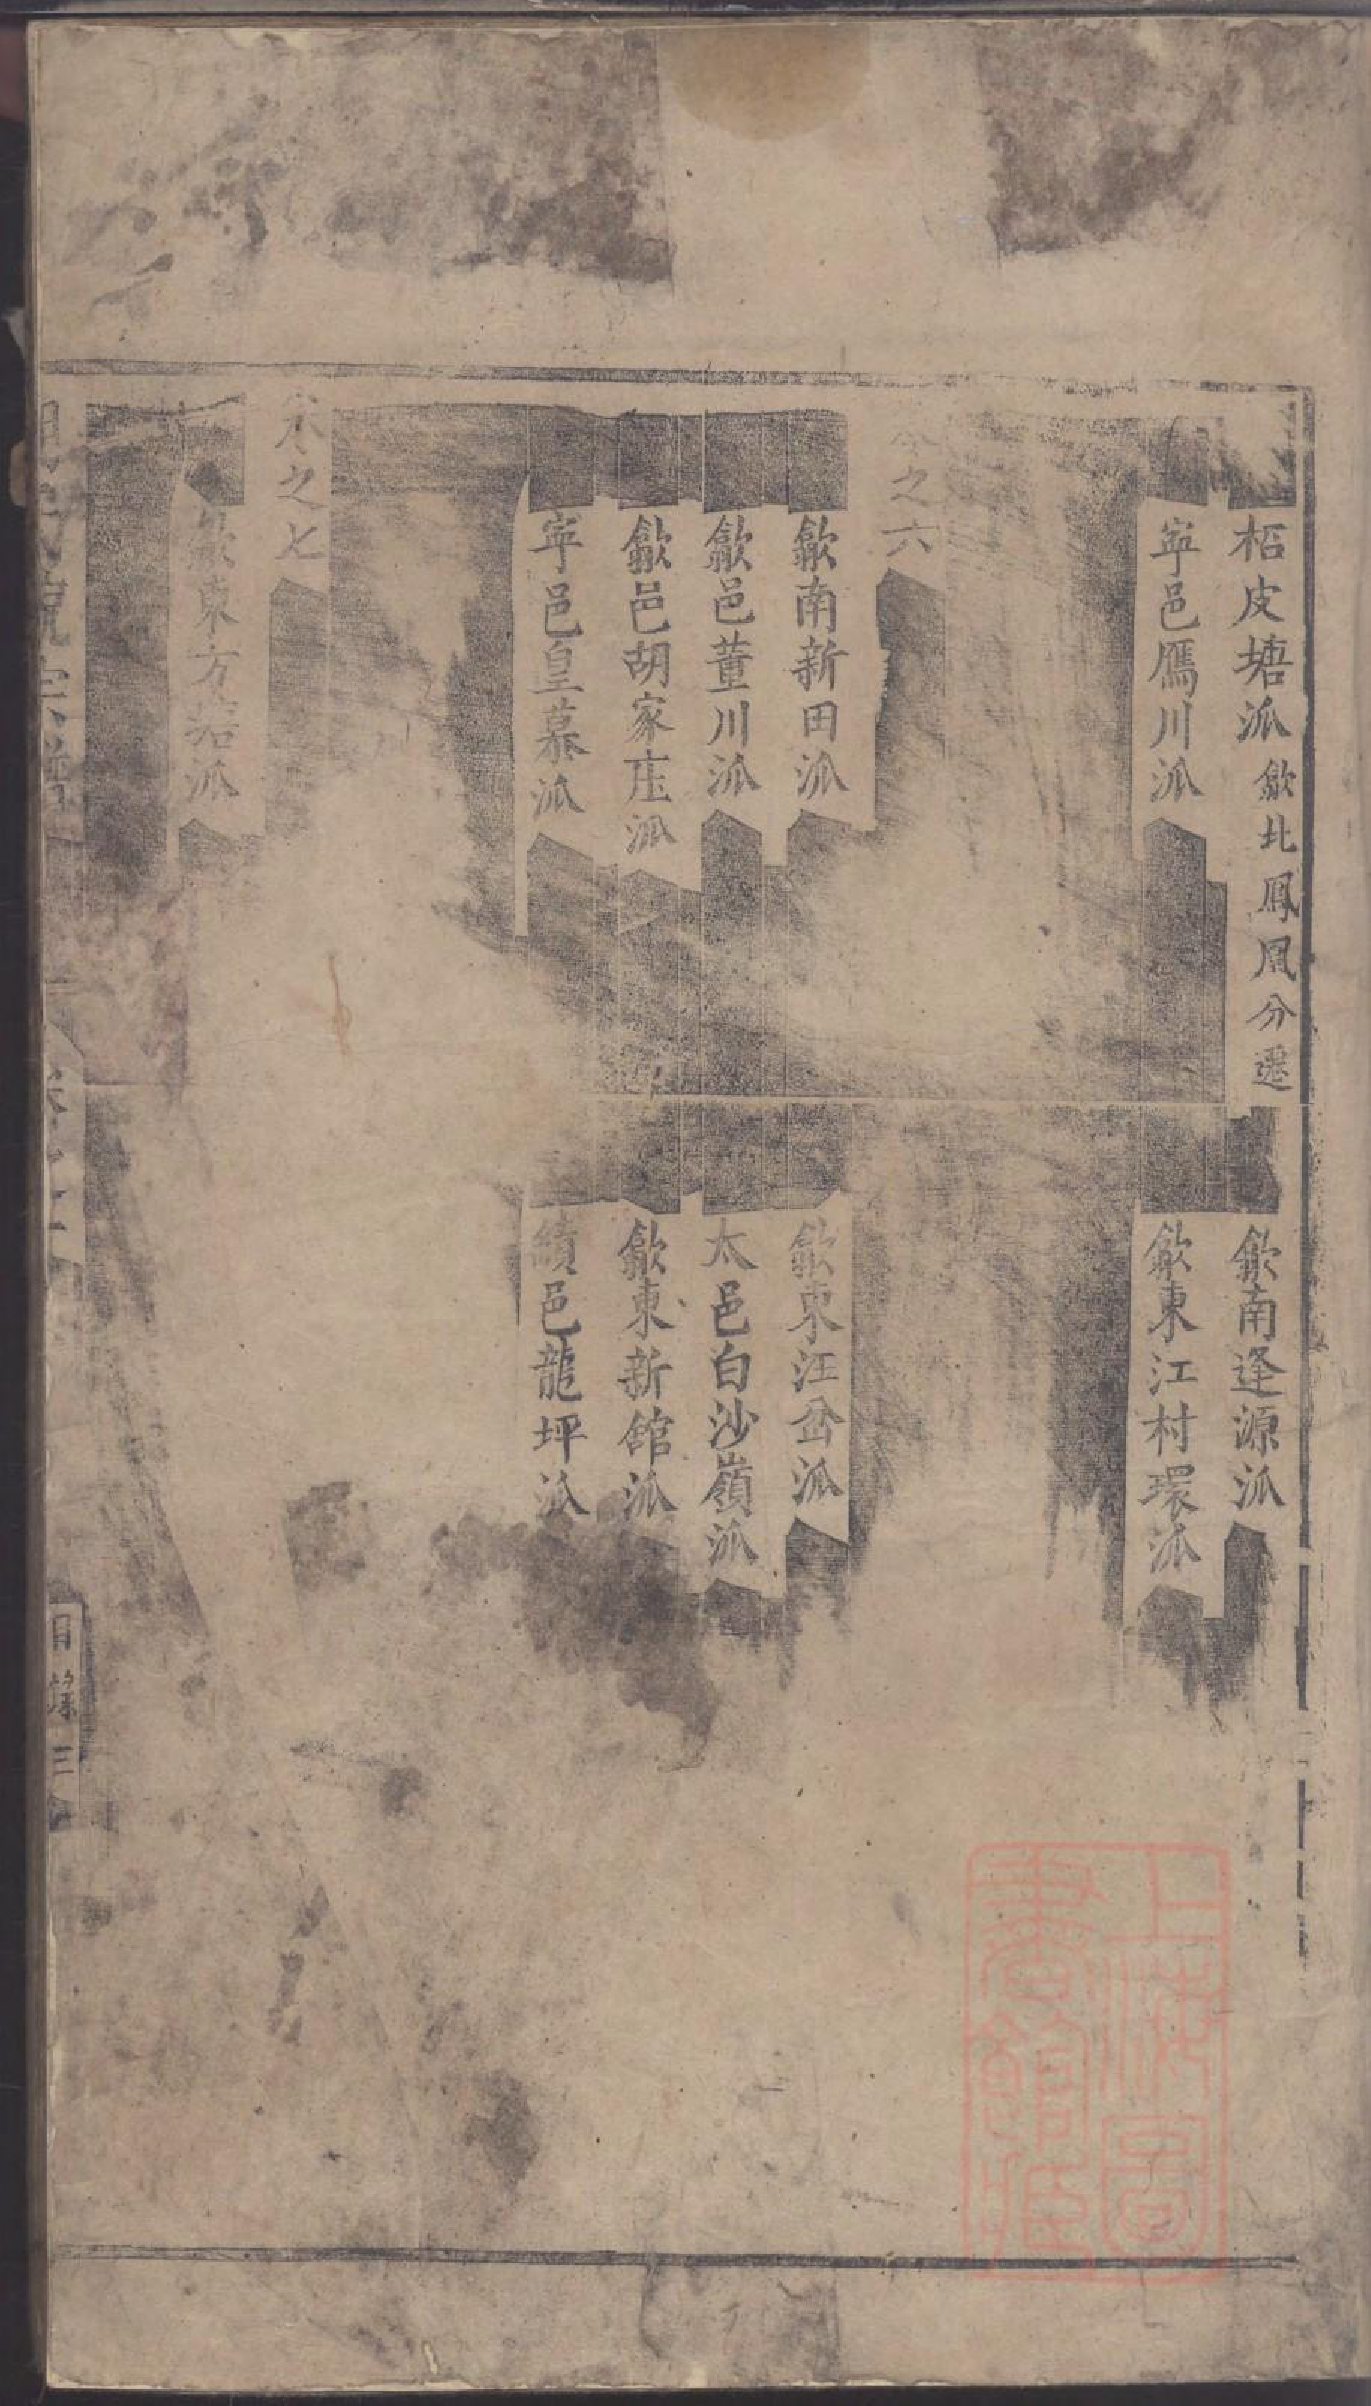 柘皮塘派 歙北鳳凰分遷
歙南逢源派
寧邑鴈川派
歙東江村環派
卷之六
歙南新田派
歙東汪岔派
歙邑董川派
太邑白沙嶺派
歙邑胡家庄派
歙東新舘派
寧邑皇慕派
績邑龍坪派
卷之七
歙東方塘派
目錄 三
上海圖書館藏